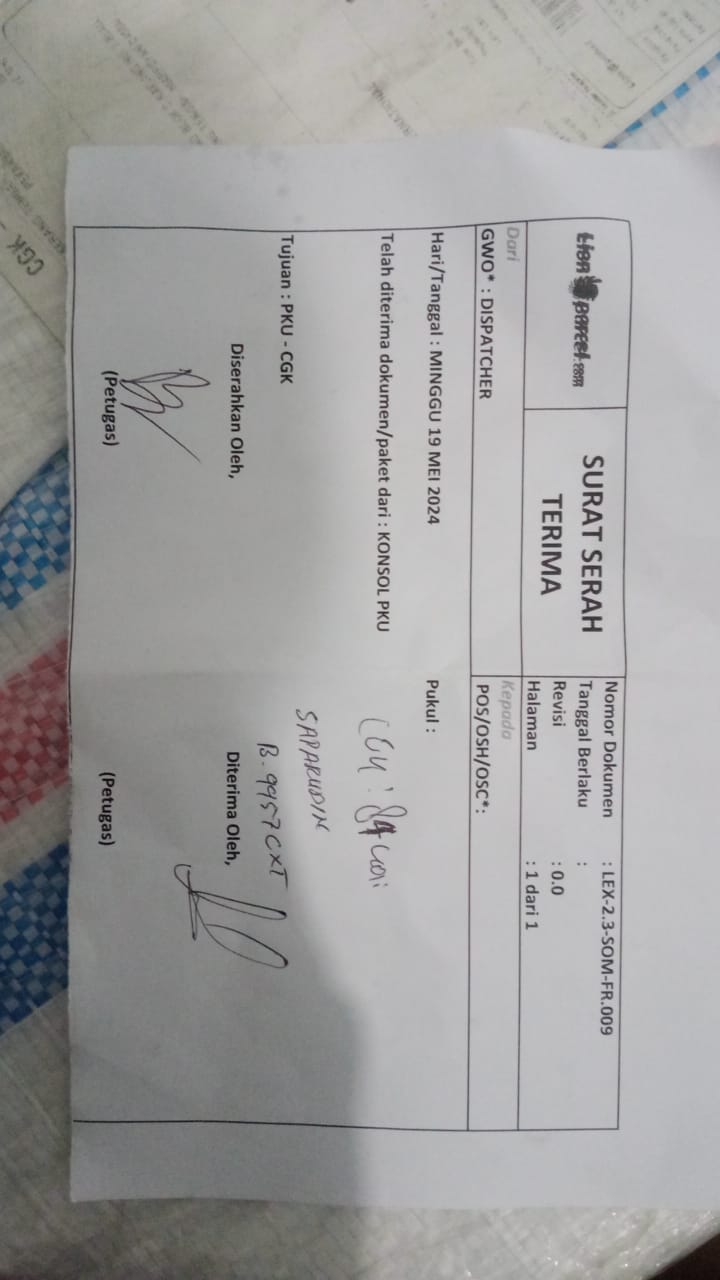 Lion parcel.com
SURAT SERAH
TERIMA
Nomor Dokumen : LEX-2.3-SOM-FR.009
Tanggal Berlaku :
Revisi : 0.0
Halaman : 1 dari 1
Dari
GWO* : DISPATCHER
Kepada
POS/OSH/OSC*:
Hari/Tanggal : MINGGU 19 MEI 2024
Pukul :
Telah diterima dokumen/paket dari : KONSOL PKU
Tujuan : PKU - CGK
SAPARUDIN
B. 9957 CXT
Diserahkan Oleh,
Diterima Oleh,
(Petugas)
(Petugas)
CGK